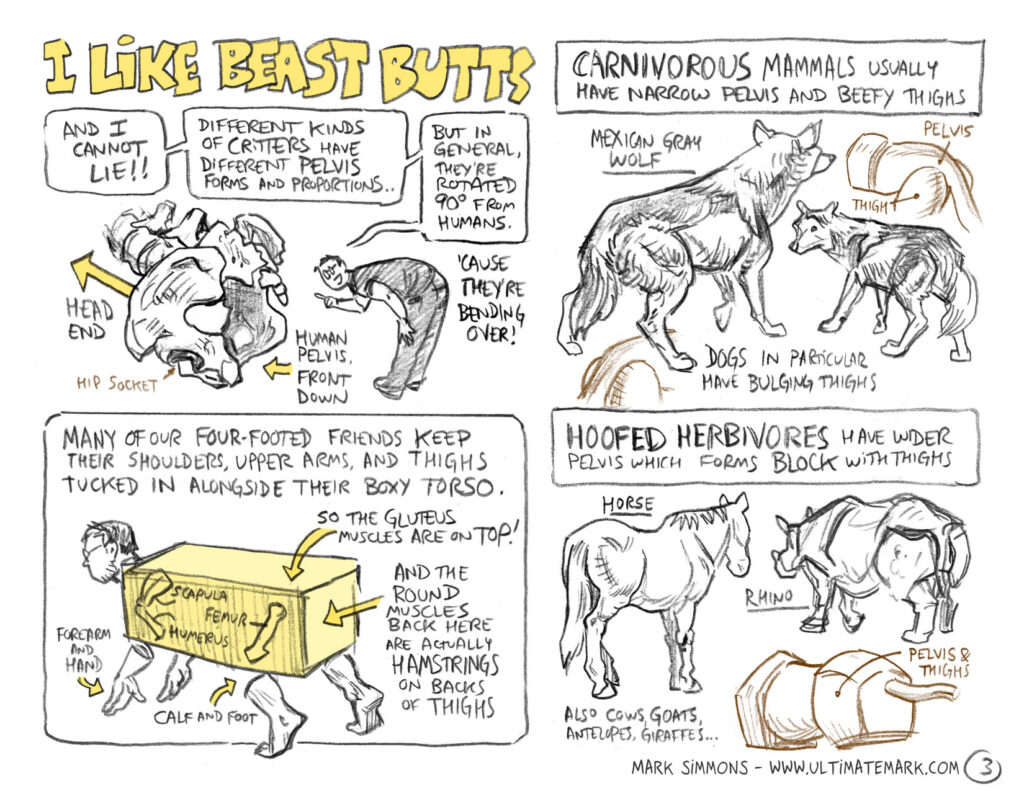 I LIKE BEAST BUTTS
AND I
CANNOT
LIE!!
DIFFERENT KINDS
OF CRITTERS HAVE
DIFFERENT PELVIS
FORMS AND PROPORTIONS..
BUT IN
GENERAL,
THEY'RE
ROTATED
90° FROM
HUMANS.
'CAUSE
THEY'RE
BENDING
OVER!
HEAD
END
HIP SOCKET
HUMAN
PELVIS,
FRONT
DOWN
MANY OF OUR FOUR-FOOTED FRIENDS KEEP
THEIR SHOULDERS, UPPER ARMS, AND THIGHS
TUCKED IN ALONGSIDE THEIR BOXY TORSO.
SO THE GLUTEUS
MUSCLES ARE ON TOP!
SCAPULA
FEMUR
HUMERUS
FOREARM
AND
HAND
CALF AND FOOT
AND THE
ROUND
MUSCLES
BACK HERE
ARE ACTUALLY
HAMSTRINGS
ON BACKS
OF THIGHS
CARNIVOROUS MAMMALS USUALLY
HAVE NARROW PELVIS AND BEEFY THIGHS
MEXICAN GRAY
WOLF
PELVIS
THIGH
DOGS IN PARTICULAR
HAVE BULGING THIGHS
HOOFED HERBIVORES HAVE WIDER
PELVIS WHICH FORMS BLOCK WITH THIGHS
HORSE
RHINO
PELVIS &
THIGHS
ALSO COWS, GOATS,
ANTELOPES, GIRAFFES...
MARK SIMMONS - WWW.ULTIMATEMARK.COM 3